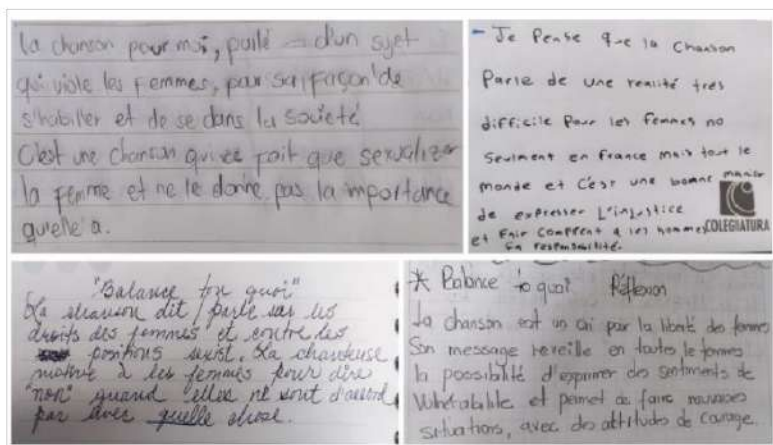 la chanson pour moi, parle d'un sujet
qui viole les femmes, pour sa façon de
s'habiller et de se dans la societé
C'est une chanson qui ne fait que sexualizer
la femme et ne le donne pas la importance
qu'elle a.
- Je Pense que la Chanson
Parle de une realité tres
difficile Pour les femmes no
Seulment en France mais tout le
monde et C'est une bonne manier
de expresser L'injustice
et Fair Comprent a les hommes
Sa responsabilité.
COLEGIATURA
"Balance ton quoi"
La chanson dit / parle sur les
droits des femmes et contre les
positions sexist. La chanteuse
motive à les femmes pour dire
"non" quand elles ne sont d'accord
par avec quelle chose.
* Balance to quoi Réflexion
La chanson est un cri par la liberté des femmes
Son message reveille en toutes le femmes
la possibilité d'exprimer des sentiments de
Vulnerabilité et permet de faire mauvaises
situations, avec des attitudes de courage.